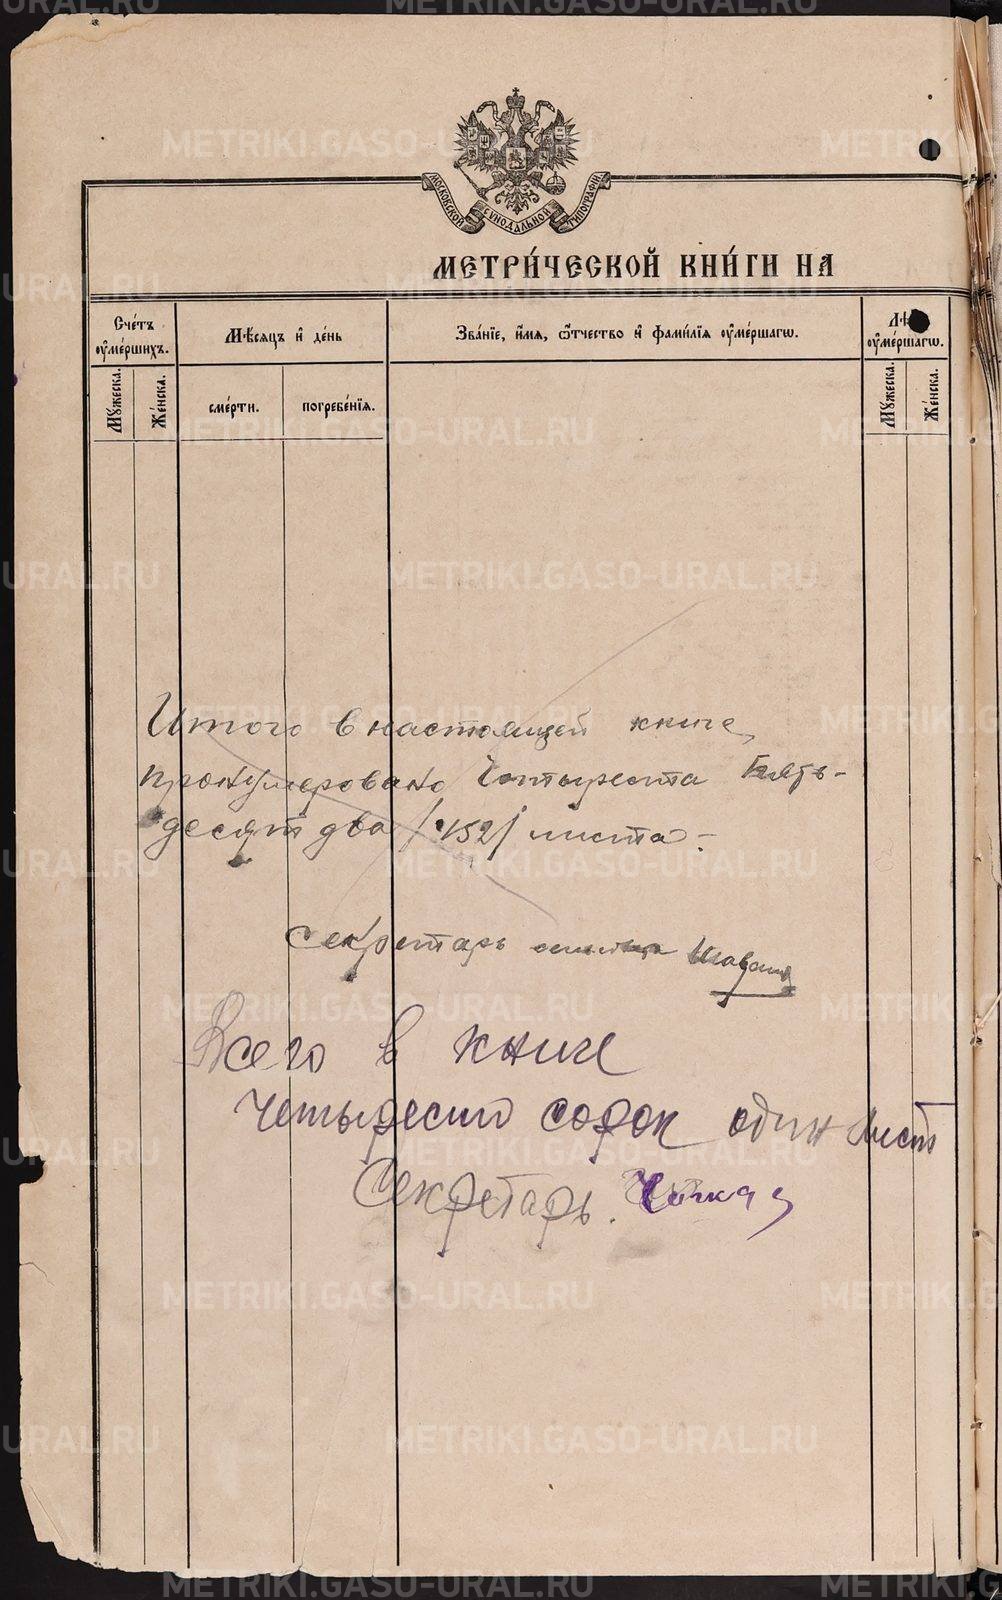 МОСКОВСКОЙ СУНОДАЛЬНОЙ ТИПОГРАФІИ
МЕТРИ́ЧЕСКОЙ КНИ́ГИ НА
Сче́тъ
ᲂу҆ме́ршихъ.
Мѣ́сяцъ и҆ де́нь
Зва́нїе, и҆́мя, ѻ҆́тчество и҆ фами́лїя ᲂу҆ме́ршагѡ.
ᲂу҆ме́ршагѡ.
Мꙋ́жеска.
Же́нска.
сме́рти.
погребе́нїя.
Мꙋ́жеска.
Же́нска.
Итого в настоящей книге
пронумеровано Четыреста Пять-
десят два /452/ листа -
Секретарь
Всего в книге
Четыреста сорок один лист
Секретарь.
METRIKI.GASO-URAL.RU